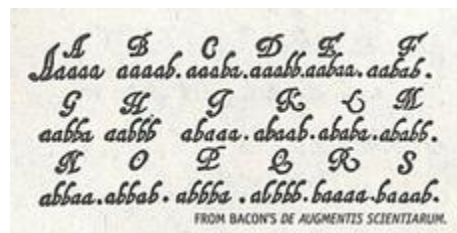 A B C D E F
Aaaaa aaaab. aaaba. aaabb. aabaa. aabab.
G H I K L M
aabba aabbb abaaa. abaab. ababa. ababb.
N O P Q R S
abbaa. abbab. abbba. abbbb. baaaa. baaab.
FROM BACON'S DE AUGMENTIS SCIENTIARUM.